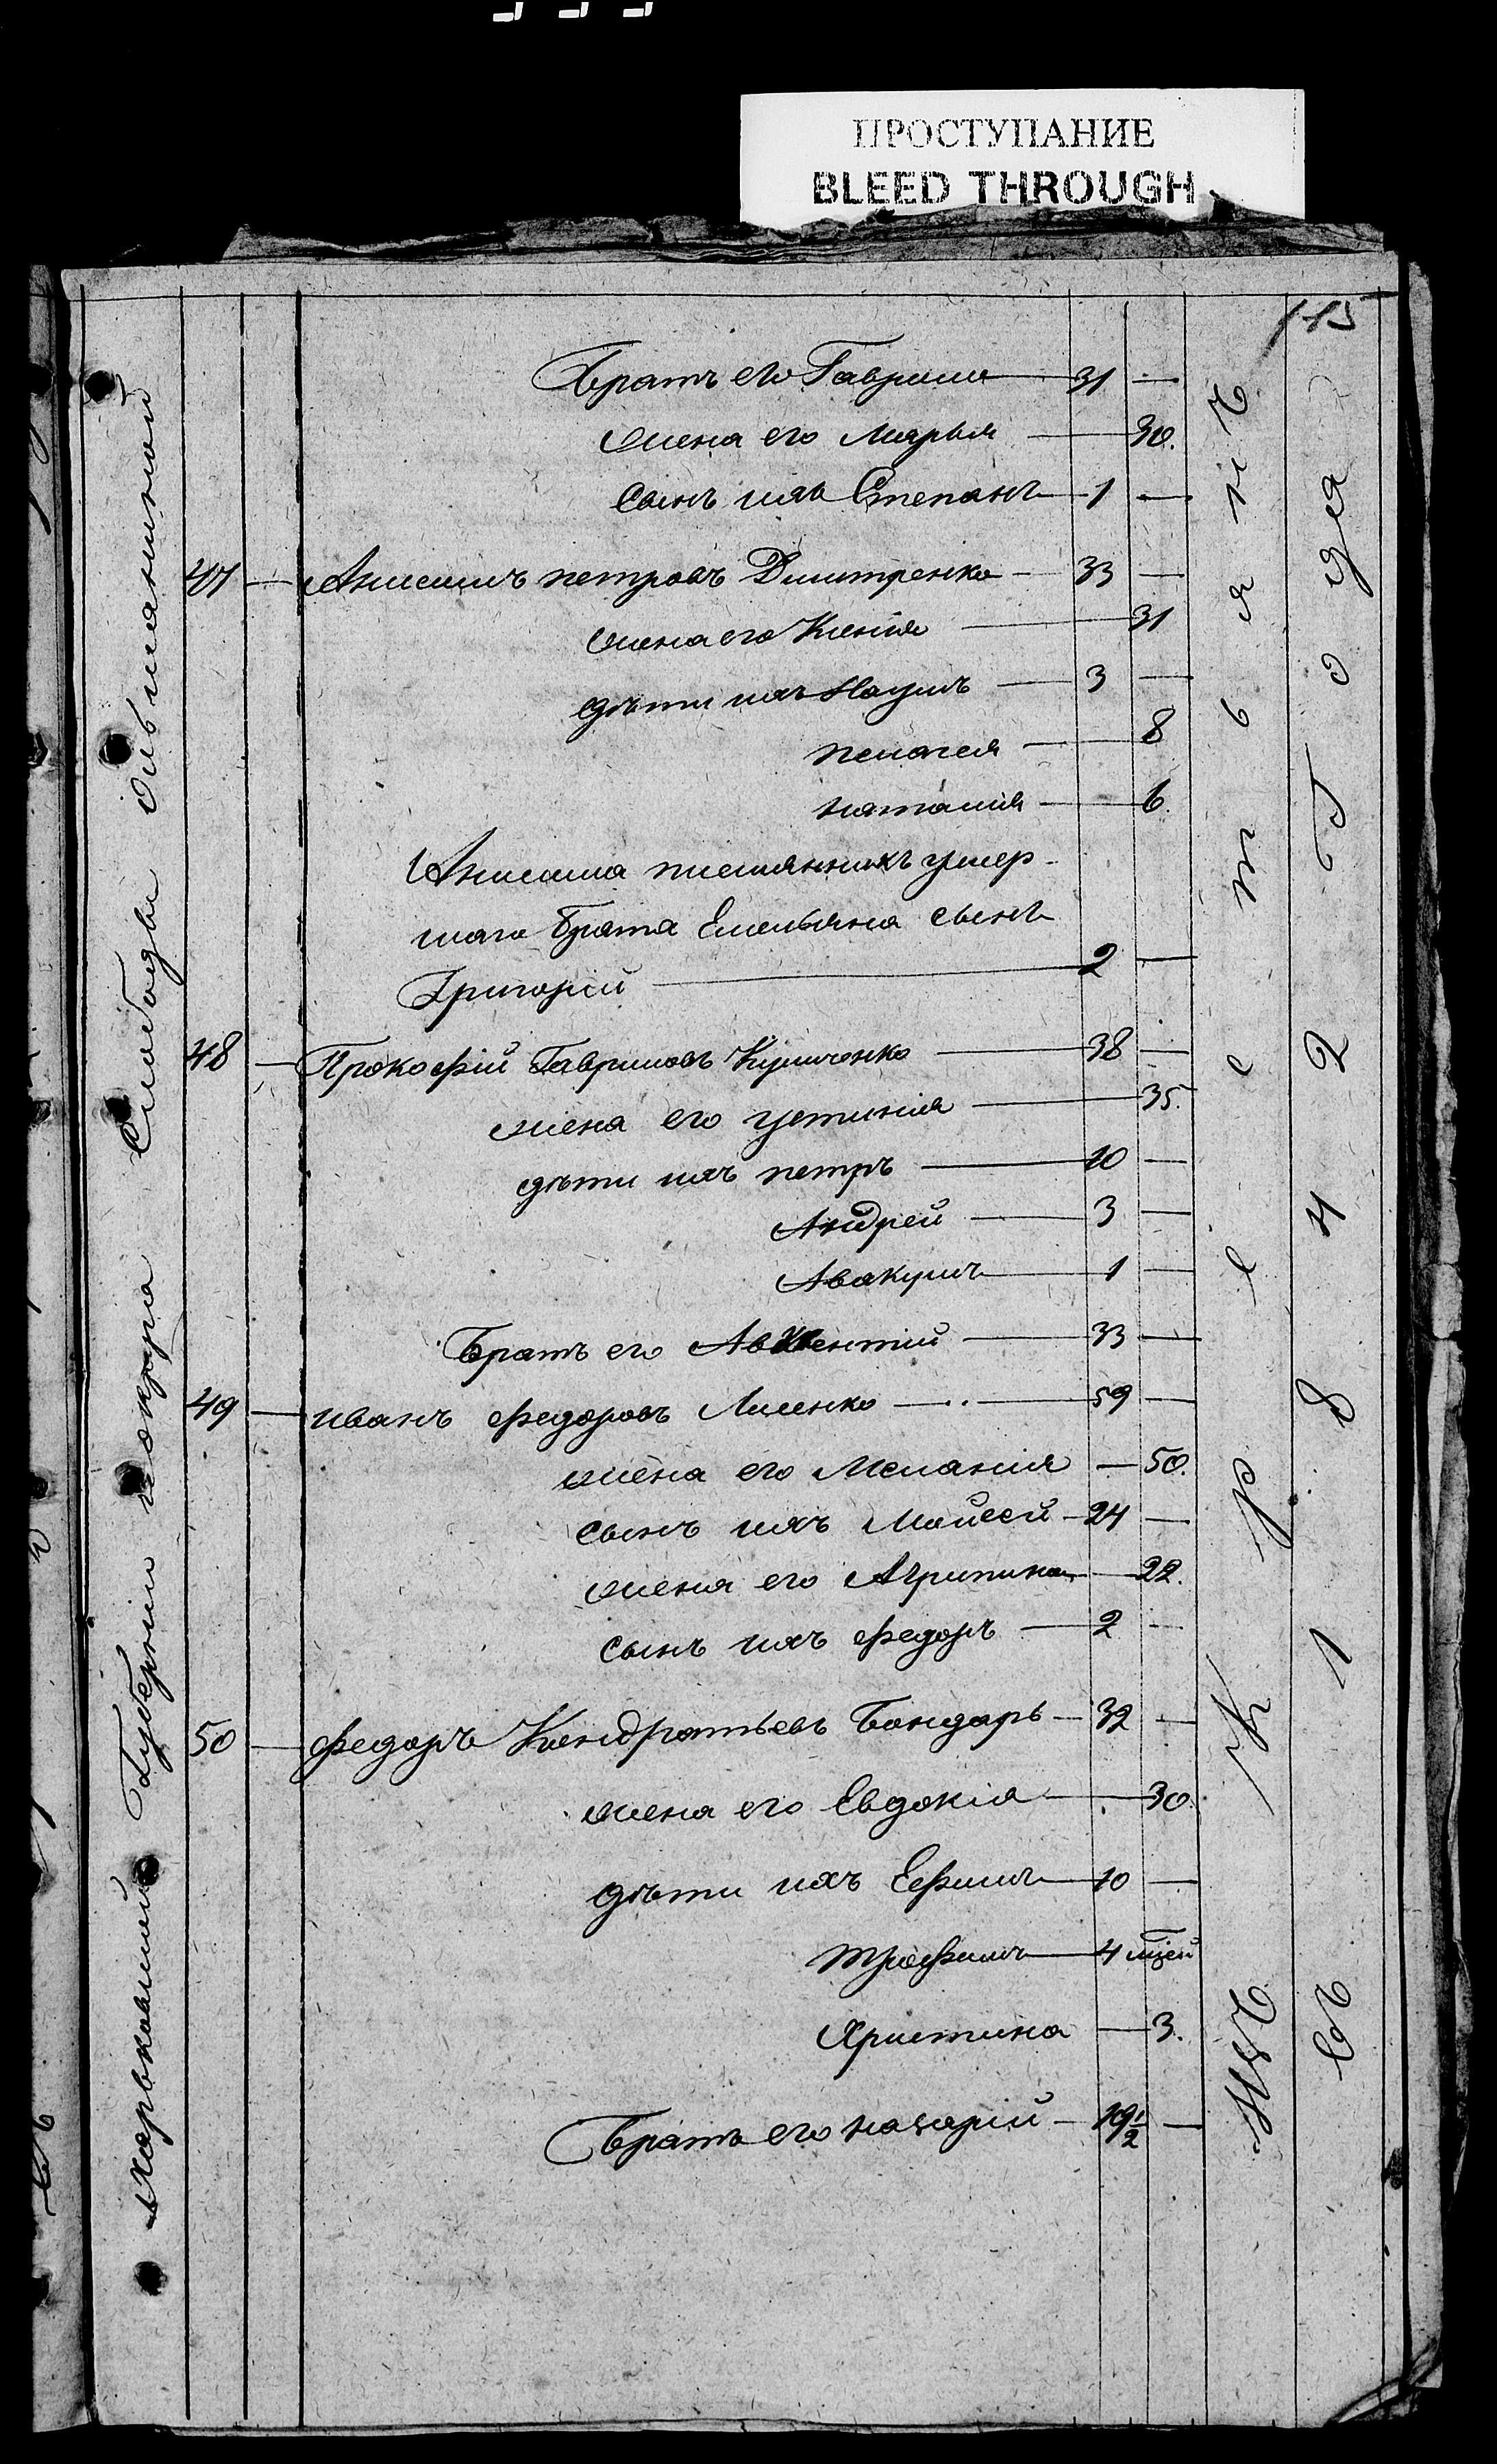 ПРОСТУПАНИЕ
BLEED THROUGH
115
Братъ его Гаврила — 31 —
жена его Марья — 30.
Сынъ ихъ Степанъ — 1 —
47 — Анисимъ петровъ Дмитренко — 33 —
жена его Ксенія — 31
дѣти ихъ Наумъ — 3 —
пелагея — 8
наталия — 6.
Анисима племянникъ умер-
шаго брата Емельяна сынъ
Григорій — 2 —
48 — Прокофій Гавриловъ — 38 —
жена его устинія — 35.
дѣти ихъ петръ — 10 —
Андрей — 3 —
Авакумъ — 1 —
Братъ его Авксентій — 33 —
49 — иванъ федоровъ Лисенко — 59 —
жена его Меланія — 50.
сынъ ихъ Мойсей — 24 —
жена его Агрипина — 22.
сынъ ихъ федоръ — 2 —
50 — федоръ Кондратьевъ Бондарь — 32 —
жена его Евдокія — 30.
дѣти ихъ Ефимъ — 10 —
трофимъ — 4 мцей
Христина — 3.
Братъ его назарій — 19 1/2 —
Харьковской Губерніи Слободы Ольшанной
Изъ Крестьянъ
въ 1842 года